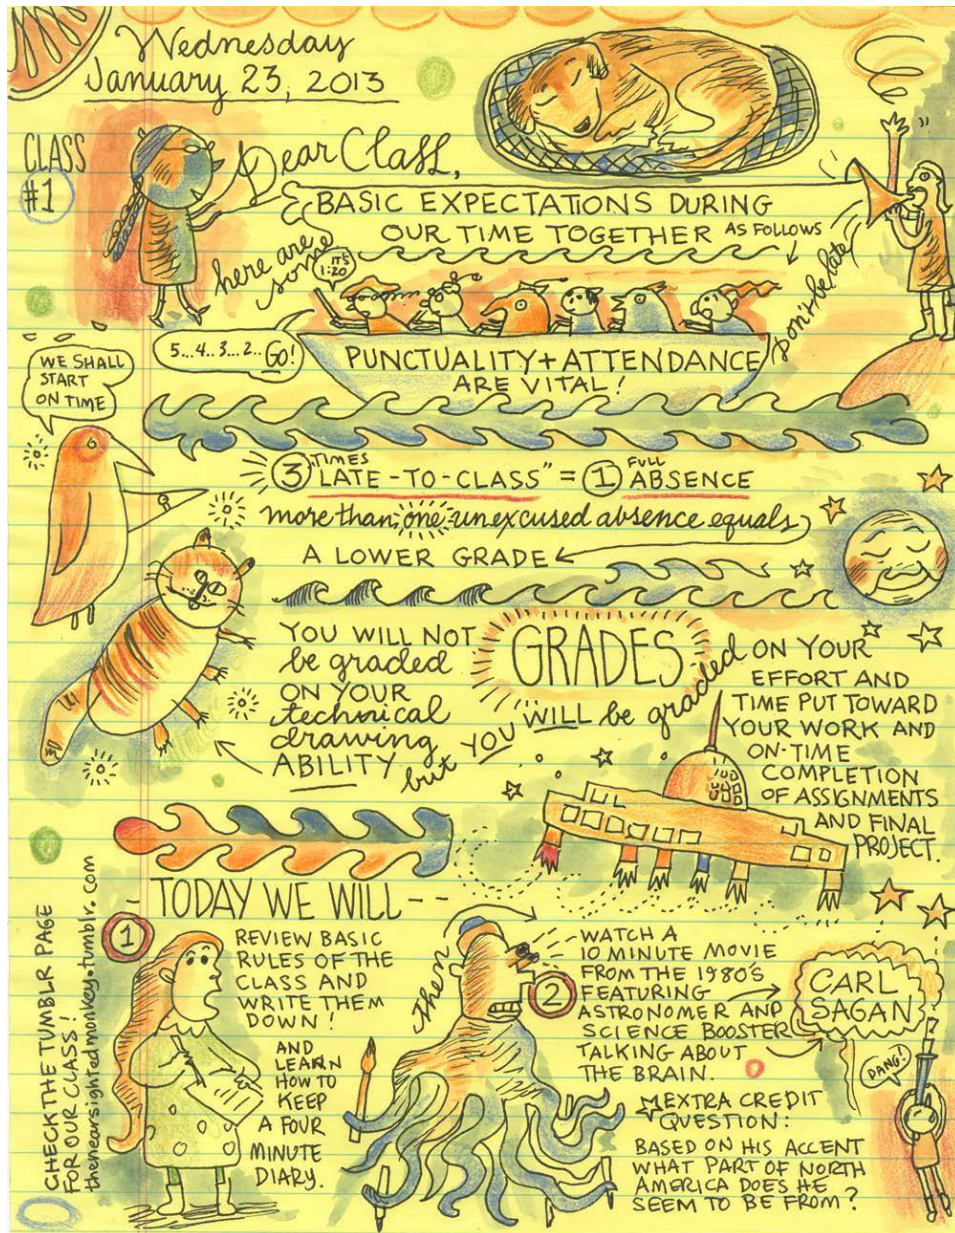 Wednesday
January 23, 2013
CLASS
#1
Dear Class,
here are
some
BASIC EXPECTATIONS DURING
OUR TIME TOGETHER AS FOLLOWS
Don't be late
IT'S
1:20
5...4...3...2..Go!
PUNCTUALITY + ATTENDANCE
ARE VITAL!
WE SHALL
START
ON TIME
3 TIMES LATE-TO-CLASS" = 1 FULL ABSENCE
more than one unexcused absence equals
A LOWER GRADE
GRADES
YOU WILL NOT
be graded
ON YOUR
technical
drawing
ABILITY
but YOU WILL be graded ON YOUR
EFFORT AND
TIME PUT TOWARD
YOUR WORK AND
ON-TIME
COMPLETION
OF ASSIGNMENTS
AND FINAL
PROJECT.
TODAY WE WILL--
1
REVIEW BASIC
RULES OF THE
CLASS AND
WRITE THEM
DOWN!
AND
LEARN
HOW TO
KEEP
A FOUR
MINUTE
DIARY.
Then
2
WATCH A
10 MINUTE MOVIE
FROM THE 1980'S
FEATURING
ASTRONOMER AND
SCIENCE BOOSTER
CARL
SAGAN
TALKING ABOUT
THE BRAIN.
DANG!
EXTRA CREDIT
QUESTION:
BASED ON HIS ACCENT
WHAT PART OF NORTH
AMERICA DOES HE
SEEM TO BE FROM?
CHECK THE TUMBLR PAGE
FOR OUR CLASS!
thenearsightedmonkey.tumblr.com